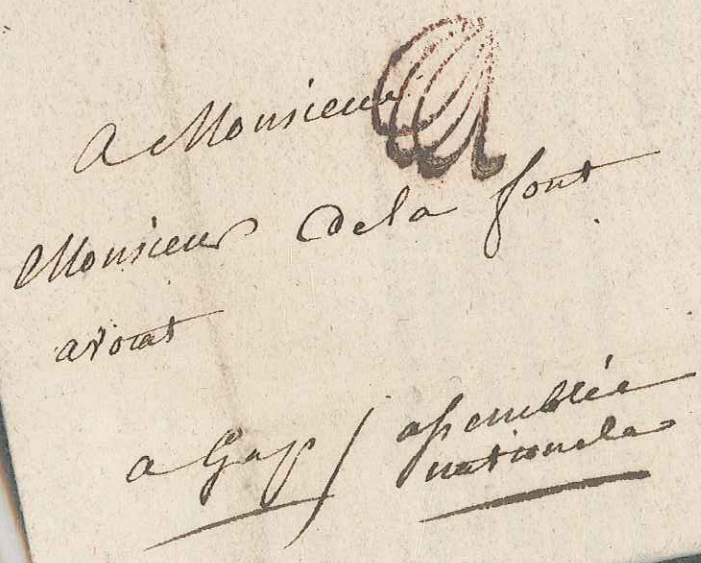 A Monsieur
Monsieur de la font
avocat
a Gap / assemblée
nationale